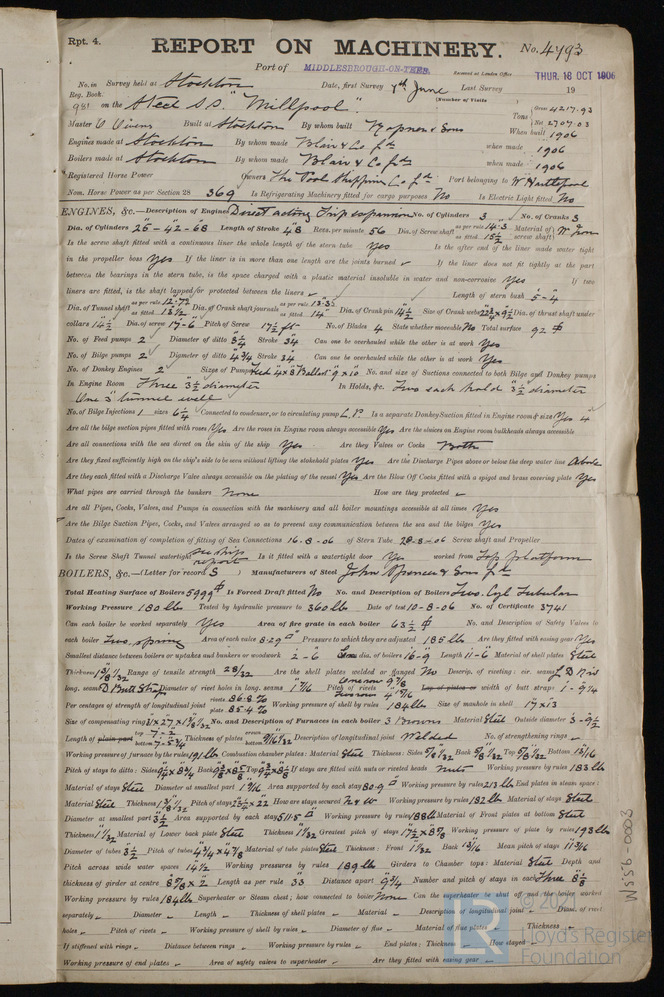 Rpt. 4.
REPORT ON MACHINERY. No. 4793
Port of MIDDLESBROUGH-ON-TEES.
Received at London Office THUR. 18 OCT 1906
No. in Survey held at Stockton Date, first Survey 7th June Last Survey 19
Reg. Book. (Number of Visits)
981 on the Steel S.S. "Millpool". Tons Gross 4217.93 Net 2707.03
Master Built at Stockton By whom built Ropner & Sons When built 1906
Engines made at Stockton By whom made Blair & Co Ltd when made 1906
Boilers made at Stockton By whom made Blair & Co Ltd when made 1906
Registered Horse Power Owners The Pool Shipping Co Ld Port belonging to W Hartlepool
Nom. Horse Power as per Section 28 369 Is Refrigerating Machinery fitted for cargo purposes No Is Electric Light fitted No
ENGINES, &c.—Description of Engines Direct acting Trip expansion No. of Cylinders 3 No. of Cranks 3
Dia. of Cylinders 25-42-68 Length of Stroke 48 Revs. per minute 56 Dia. of Screw shaft as per rule 14.3 as fitted 15½ Material of screw shaft W Iron
Is the screw shaft fitted with a continuous liner the whole length of the stern tube Yes Is the after end of the liner made water tight
in the propeller boss Yes If the liner is in more than one length are the joints burned If the liner does not fit tightly at the part
between the bearings in the stern tube, is the space charged with a plastic material insoluble in water and non-corrosive Yes If two
liners are fitted, is the shaft lapped or protected between the liners Length of stern bush 5-4
Dia. of Tunnel shaft as per rule 12.72 as fitted 13½ Dia. of Crank shaft journals as per rule 13.35 as fitted 14" Dia. of Crank pin 14½ Size of Crank webs 22¾ x 9½ Dia. of thrust shaft under
collars 14½ Dia. of screw 17-6 Pitch of Screw 17½ ft No. of Blades 4 State whether moveable No Total surface 92
No. of Feed pumps 2 Diameter of ditto 3¼ Stroke 34 Can one be overhauled while the other is at work Yes
No. of Bilge pumps 2 Diameter of ditto 4¾ Stroke 34 Can one be overhauled while the other is at work Yes
No. of Donkey Engines 2 Sizes of Pumps Feed 4 x 8 Ballast 9 x 10 No. and size of Suctions connected to both Bilge and Donkey pumps
In Engine Room Three 3½ diameter In Holds, &c. Two each hold 3½ diameter
One 3" tunnel well
No. of Bilge Injections 1 sizes 6¼ Connected to condenser, or to circulating pump C.P. Is a separate Donkey Suction fitted in Engine room & size Yes 4
Are all the bilge suction pipes fitted with roses Yes Are the roses in Engine room always accessible Yes Are the sluices on Engine room bulkheads always accessible
Are all connections with the sea direct on the skin of the ship Yes Are they Valves or Cocks Both
Are they fixed sufficiently high on the ship's side to be seen without lifting the stokehold plates Yes Are the Discharge Pipes above or below the deep water line Above
Are they each fitted with a Discharge Valve always accessible on the plating of the vessel Yes Are the Blow Off Cocks fitted with a spigot and brass covering plate Yes
What pipes are carried through the bunkers None How are they protected
Are all Pipes, Cocks, Valves, and Pumps in connection with the machinery and all boiler mountings accessible at all times Yes
Are the Bilge Suction Pipes, Cocks, and Valves arranged so as to prevent any communication between the sea and the bilges Yes
Dates of examination of completion of fitting of Sea Connections 16-8-06 of Stern Tube 28-8-06 Screw shaft and Propeller
Is the Screw Shaft Tunnel watertight see ship report Is it fitted with a watertight door Yes worked from Top platform
BOILERS, &c.—(Letter for record S) Manufacturers of Steel John Spencer & Sons Ld
Total Heating Surface of Boilers 5999 Is Forced Draft fitted No No. and Description of Boilers Two Cyl Tubular
Working Pressure 180 lbs Tested by hydraulic pressure to 360 lbs Date of test 10-8-06 No. of Certificate 3741
Can each boiler be worked separately Yes Area of fire grate in each boiler 63½ No. and Description of Safety Valves to
each boiler Two, spring Area of each valve 8.29 Pressure to which they are adjusted 185 lbs Are they fitted with easing gear Yes
Smallest distance between boilers or uptakes and bunkers or woodwork 2-6 dia. of boilers 16-9 Length 11-6 Material of shell plates Steel
Thickness 1 11/32 Range of tensile strength 28/32 Are the shell plates welded or flanged No Descrip. of riveting: cir. seams
long. seams D Butt Straps Diameter of rivet holes in long. seams 1 7/16 Pitch of rivets Lap of plates or width of butt straps 1-9¼
Per centages of strength of longitudinal joint rivets 86.8 % plate 85.4 % Working pressure of shell by rules 184 lbs Size of manhole in shell 17 x 13
Size of compensating ring No. and Description of Furnaces in each boiler 3 Browns Material Steel Outside diameter 3-9½
Length of plain part top 7-2 bottom 7-5¾ Thickness of plates crown bottom 9/16 Description of longitudinal joint Welded No. of strengthening rings
Working pressure of furnace by the rules 191 lbs Combustion chamber plates: Material Steel Thickness: Sides Back Top Bottom 13/16
Pitch of stays to ditto: Sides Back Top If stays are fitted with nuts or riveted heads Nuts Working pressure by rules 183 lbs
Material of stays Steel Diameter at smallest part Area supported by each stay 80.9 Working pressure by rules 213 lbs End plates in steam space:
Material Steel Thickness Pitch of stays How are stays secured N & W Working pressure by rules 182 lbs Material of stays Steel
Diameter at smallest part 3½ Area supported by each stay 511.5 Working pressure by rules 188 lbs Material of Front plates at bottom Steel
Thickness Material of Lower back plate Steel Thickness Greatest pitch of stays Working pressure of plate by rules 193 lbs
Diameter of tubes 3½ Pitch of tubes 4¾ x 4⅞ Material of tube plates Steel Thickness: Front Back 13/16 Mean pitch of stays
Pitch across wide water spaces 14½ Working pressures by rules 189 lbs Girders to Chamber tops: Material Steel Depth and
thickness of girder at centre 8⅝ x 2 Length as per rule 33 Distance apart 9¾ Number and pitch of stays in each Three 8⅛
Working pressure by rules 184 lbs Superheater or Steam chest; how connected to boiler None Can the superheater be shut off and the boiler worked
separately Diameter Length Thickness of shell plates Material Description of longitudinal joint Diam. of rivet
holes Pitch of rivets Working pressure of shell by rules Diameter of flue Material of flue plates Thickness
If stiffened with rings Distance between rings Working pressure by rules End plates: Thickness How stayed
Working pressure of end plates Area of safety valves to superheater Are they fitted with easing gear
W556-0003
Lloyd's Register
Foundation